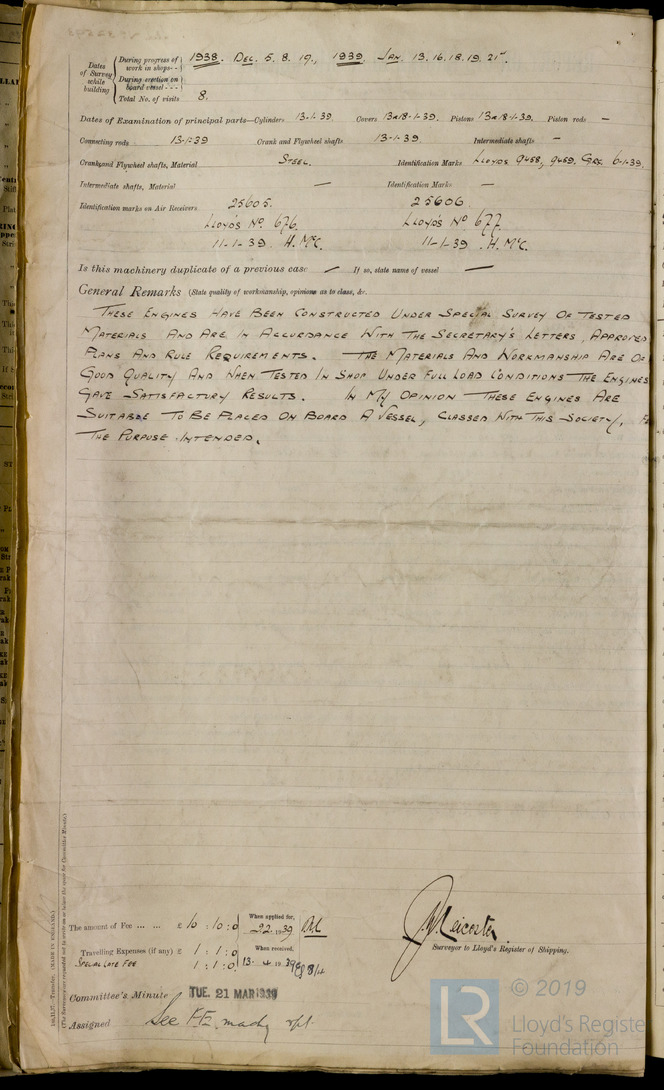 Dates of Survey while building
During progress of work in shops - - 1938. DEC. 5. 8. 19., 1939 JAN. 13. 16. 18. 19. 21st.
During erection on board vessel - - -
Total No. of visits 8.
Dates of Examination of principal parts—Cylinders 13-1-39. Covers 13 & 18-1-39. Pistons 13 & 18-1-39. Piston rods —
Connecting rods 13-1-39 Crank and Flywheel shafts 13-1-39. Intermediate shafts —
Crank and Flywheel shafts, Material STEEL. Identification Marks LLOYDS 9458, 9459. 6-1-39.
Intermediate shafts, Material — Identification Marks —
Identification marks on Air Receivers 25605. 25606.
LLOYD'S No 676. LLOYD'S No 677.
11-1-39. H.McC. 11-1-39. H.McC.
Is this machinery duplicate of a previous case — If so, state name of vessel —
General Remarks (State quality of workmanship, opinions as to class, &c.
THESE ENGINES HAVE BEEN CONSTRUCTED UNDER SPECIAL SURVEY OF TESTED
MATERIALS AND ARE IN ACCORDANCE WITH THE SECRETARY'S LETTERS, APPROVED
PLANS AND RULE REQUIREMENTS. THE MATERIALS AND WORKMANSHIP ARE OF
GOOD QUALITY AND WHEN TESTED IN SHOP UNDER FULL LOAD CONDITIONS THE ENGINES
GAVE SATISFACTORY RESULTS. IN MY OPINION THESE ENGINES ARE
SUITABLE TO BE PLACED ON BOARD A VESSEL, CLASSED WITH THIS SOCIETY,
THE PURPOSE INTENDED.
The amount of Fee ... ... £ 10 : 10 : 0 When applied for, 22 1939
Travelling Expenses (if any) £ 1 : 1 : 0 When received,
SPECIAL LATE FEE 1 : 1 : 0 13. 4 1939
Leicester.
Surveyor to Lloyd's Register of Shipping.
Committee's Minute TUE. 21 MAR 1939
Assigned See F.E. machy rpt.
(MADE IN ENGLAND.)
© 2019
LR Lloyd's Register
Foundation